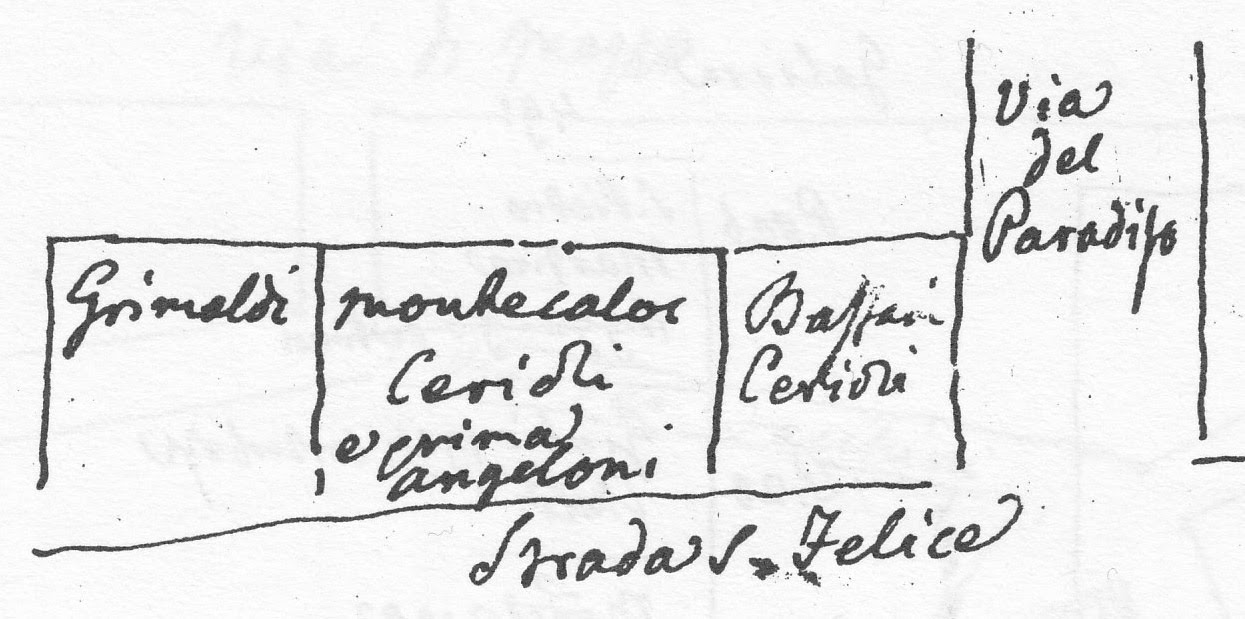 Via
del
Paradiso
Grimaldi
montecaloc
Ceridli
e prima
angeloni
Bassani
Ceridli
Strada S. Felice